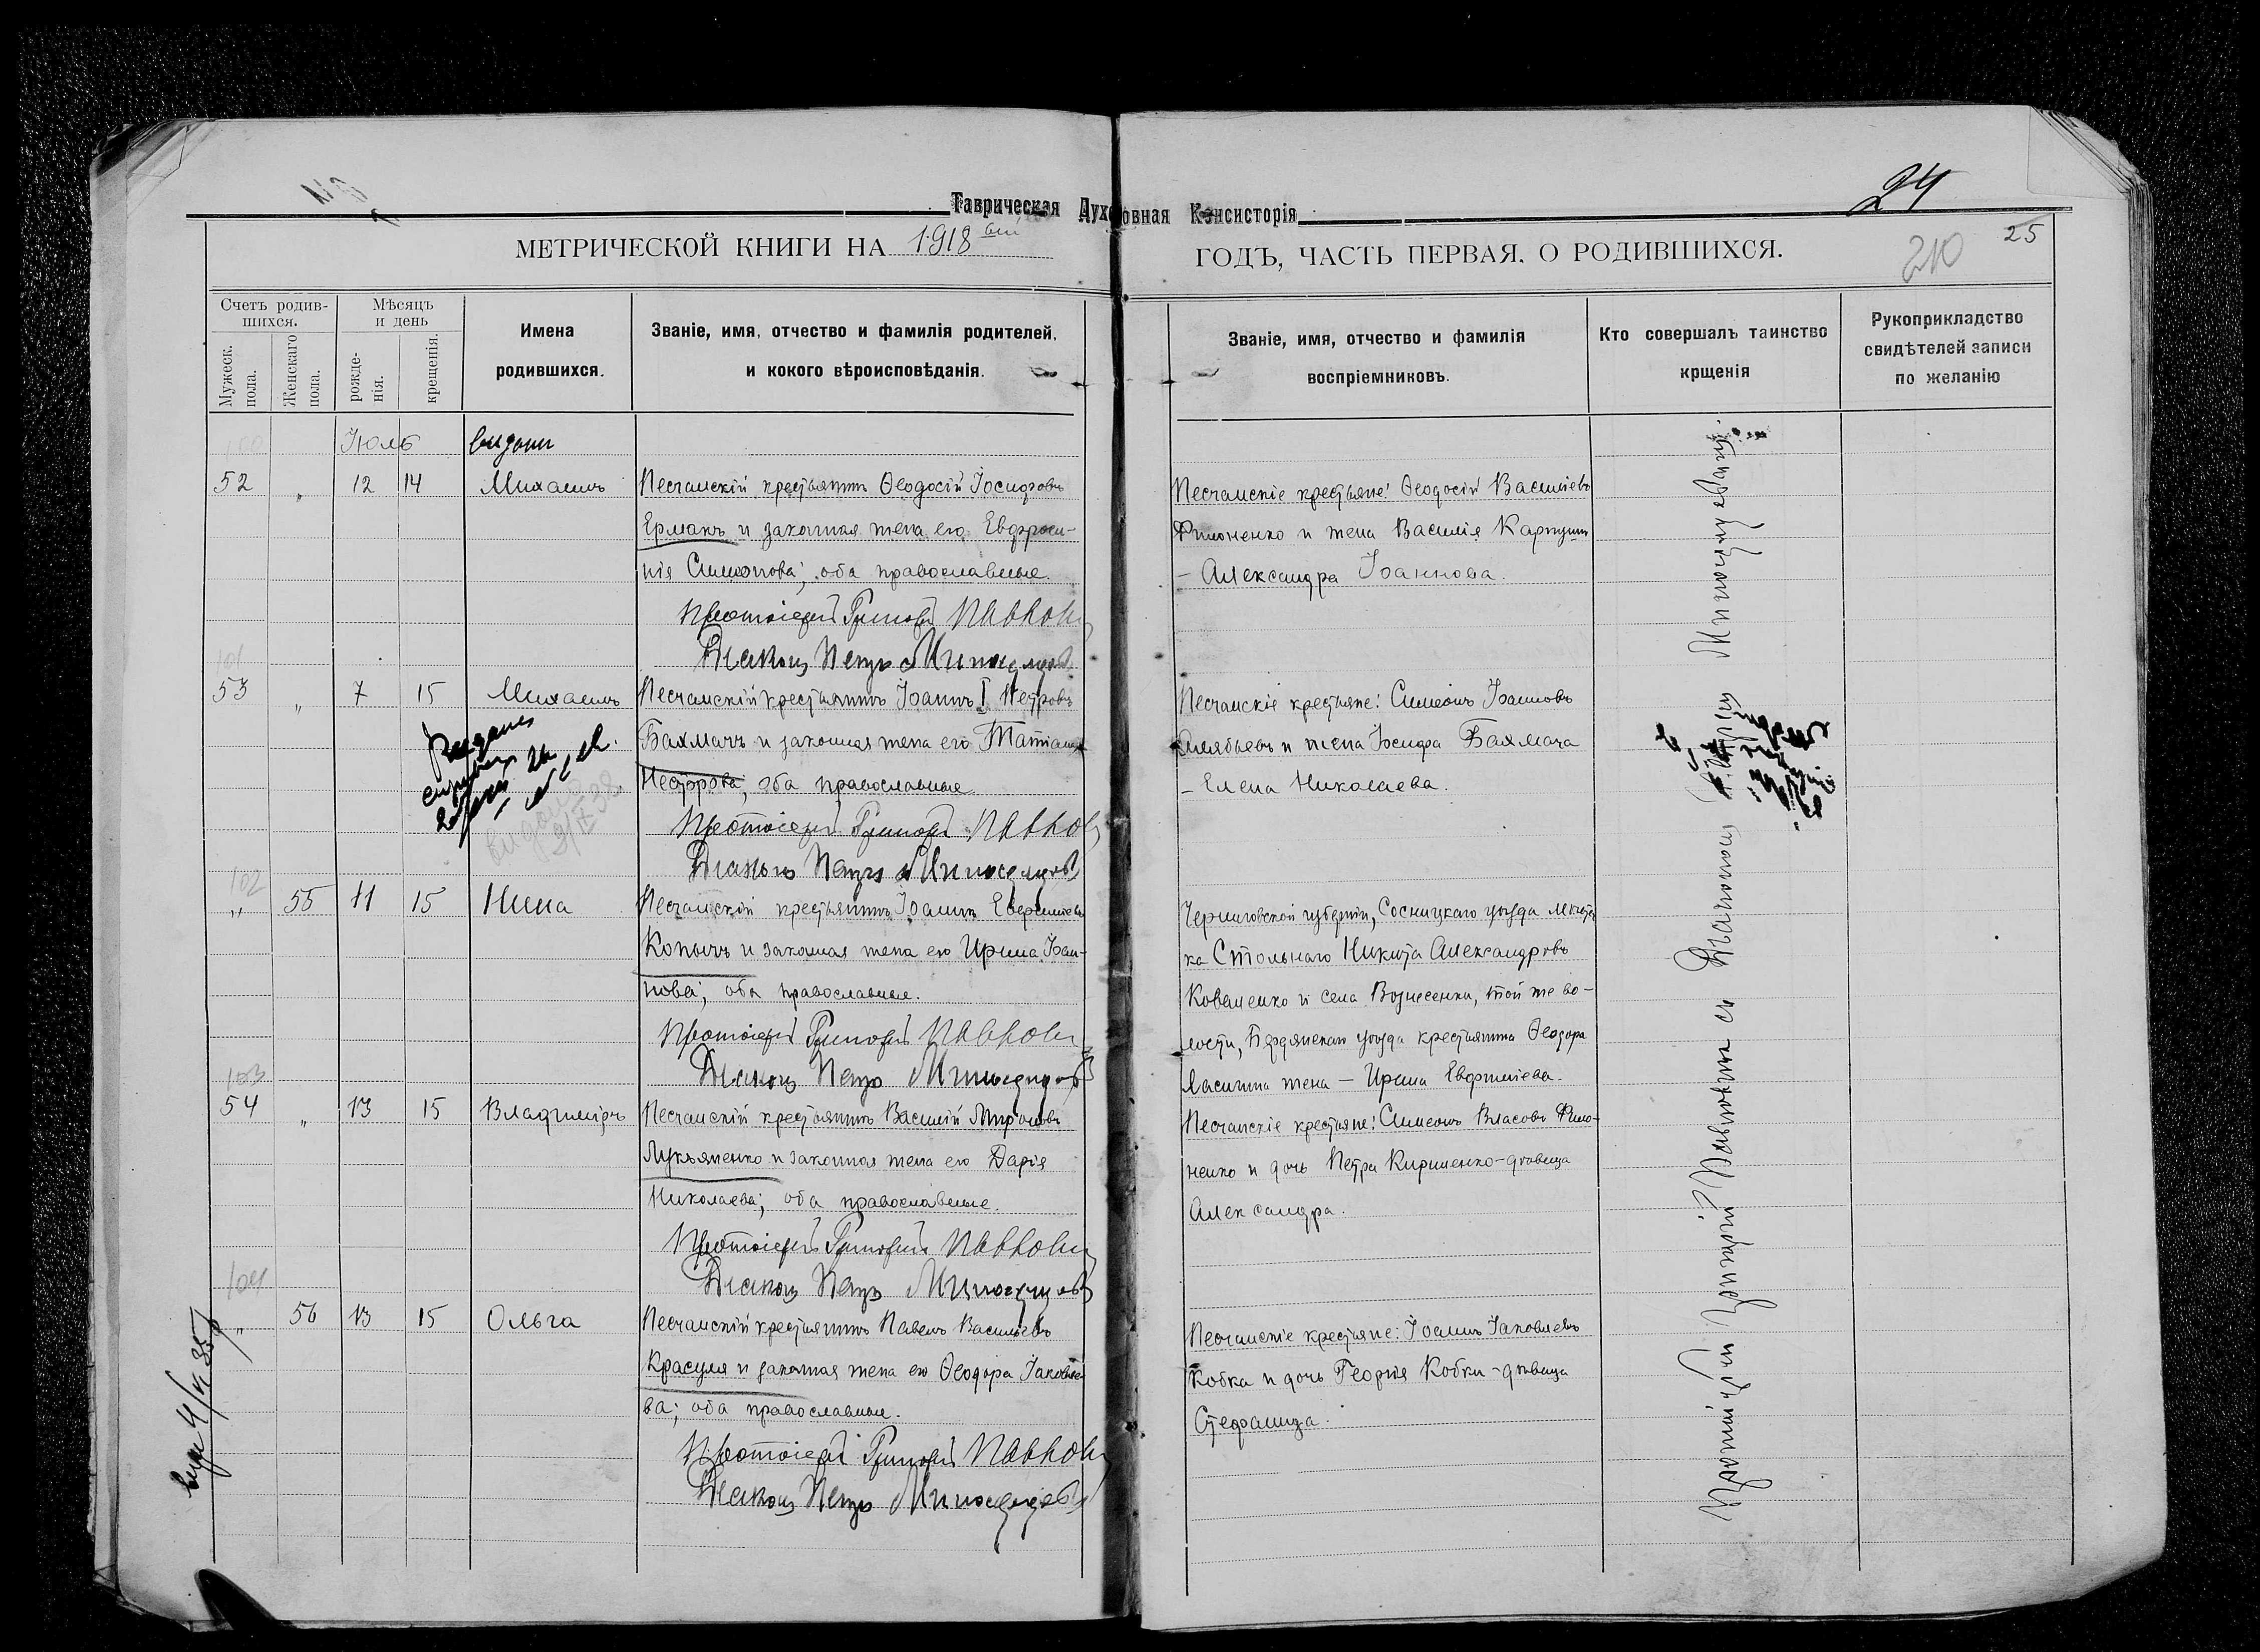 Таврическая Духовная Консисторія
24
МЕТРИЧЕСКОЙ КНИГИ НА 1918
ГОДЪ, ЧАСТЬ ПЕРВАЯ, О РОДИВШИХСЯ.
210
25
Счетъ родив-
шихся.
Мужеск.
пола.
Женскаго
пола.
Мѣсяцъ
и день
рожде-
нія.
крещенія.
Имена
родившихся.
Званіе, имя, отчество и фамилія родителей,
и кокого вѣроисповѣданія.
Званіе, имя, отчество и фамилія
воспріемниковъ.
Кто совершалъ таинство
крщенія
Рукоприкладство
свидѣтелей записи
по желанію
100 Іюль
52 " 12 14 Михаилъ Песчанскій крестьянинъ Ѳеодосій Іосифовъ
Ермакъ и законная жена его Евфроси-
нія Симонова; оба православные.
Протоіерей Григорій Павков
Діаконъ Петръ
Песчанскіе крестьяне: Ѳеодосій Василіевъ
Филоненко и жена Василія
– Александра Іоаннова.
101
53 " 7 15 Михаилъ Песчанскій крестьянинъ Іоаннъ Петровъ
Бахмачъ и законная жена его Татіана
оба православные
Протоіерей Григорій Павков
Діаконъ Петръ
Песчанскіе крестьяне: Симеонъ Іоанновъ
и жена Іосифа Бахмача
– Елена Николаева.
102
" 55 11 15 Нина Песчанскій крестьянинъ Іоаннъ
Копычъ и законная жена его Ирина Іоан-
нова; оба православные.
Протоіерей Григорій Павков
Діаконъ Петръ
Черниговской губерніи, Сосницкаго уѣзда мѣстеч
ка Стольнаго Никита Александровъ
Коваленко и села Вознесенки, той же во-
лости, Бердянскаго уѣзда крестьянина Ѳеодора
жена – Ирина
103
54 " 13 15 Владиміръ Песчанскій крестьянинъ Василій Мироновъ
Лукьяненко и законная жена его Дарія
Николаева; оба православные.
Протоіерей Григорій Павков
Діаконъ Петръ
Песчанскіе крестьяне: Симеонъ Власовъ Фило-
ненко и дочь Петра Кириленко – дѣвица
Александра.
104
" 56 13 15 Ольга Песчанскій крестьянинъ Павелъ Васильевъ
Красуля и законная жена его Ѳеодора Іаковле
ва; оба православные.
Протоіерей Григорій Павков
Діаконъ Петръ
Песчанскіе крестьяне: Іоаннъ Іаковлевъ
Кобка и дочь Георгія Кобки – дѣвица
Стефанида.
Протоіерей Григорій
съ Діакономъ Петромъ